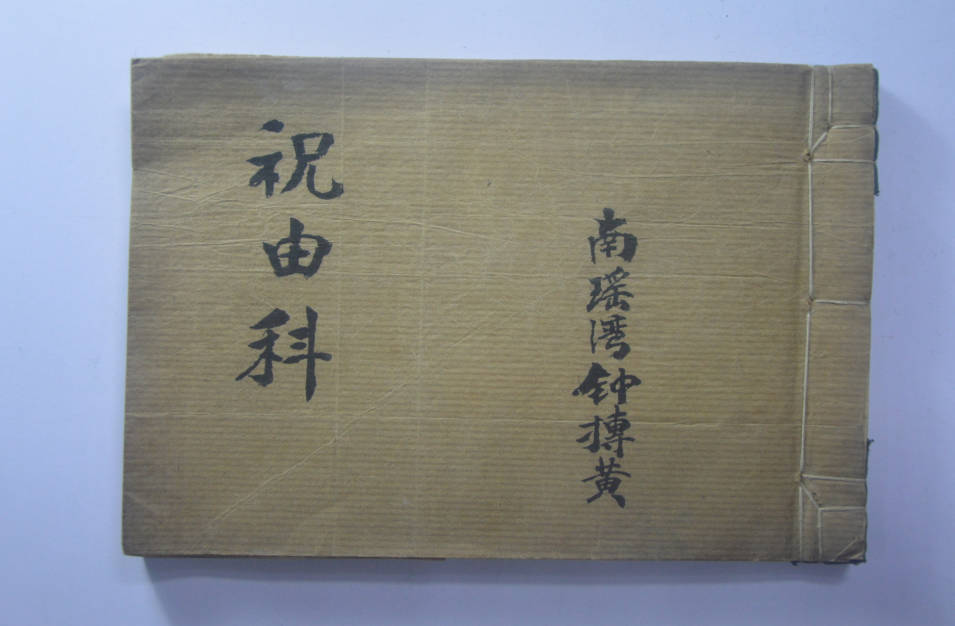 南瑶湾钟摶黄
祝由科